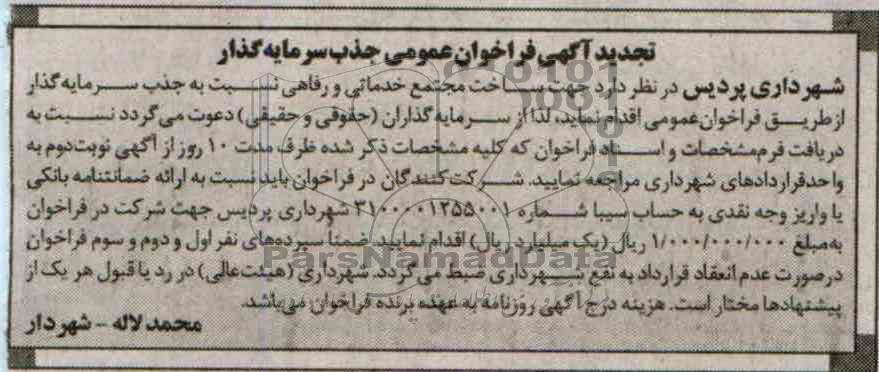 تجدید آگهی فراخوان عمومی جذب سرمایه گذار
شهرداری پردیس در نظر دارد جهت ساخت مجتمع خدماتی و رفاهی نسبت به جذب سرمایه گذار
از طریق فراخوان عمومی اقدام نماید، لذا از سرمایه گذاران (حقوقی و حقیقی) دعوت می گردد نسبت به
دریافت فرم مشخصات و اسناد فراخوان که کلیه مشخصات ذکر شده ظرف مدت ۱۰ روز از آگهی نوبت دوم به
واحد قراردادهای شهرداری مراجعه نمایید. شرکت کنندگان در فراخوان باید نسبت به ارائه ضمانتنامه بانکی
یا واریز وجه نقدی به حساب سیبا شماره ۳۱۰۰۰۰۱۲۵۵۰۰۱ شهرداری پردیس جهت شرکت در فراخوان
به مبلغ ۱/۰۰۰/۰۰۰/۰۰۰ ریال (یک میلیارد ریال) اقدام نمایید. ضمنا سپرده های نفر اول و دوم و سوم فراخوان
در صورت عدم انعقاد قرارداد به نفع شهرداری ضبط می گردد. شهرداری (هیئت عالی) در رد یا قبول هر یک از
پیشنهادها مختار است. هزینه درج آگهی روزنامه به عهده برنده فراخوان می باشد.
محمد لاله - شهردار
ParsNamadData